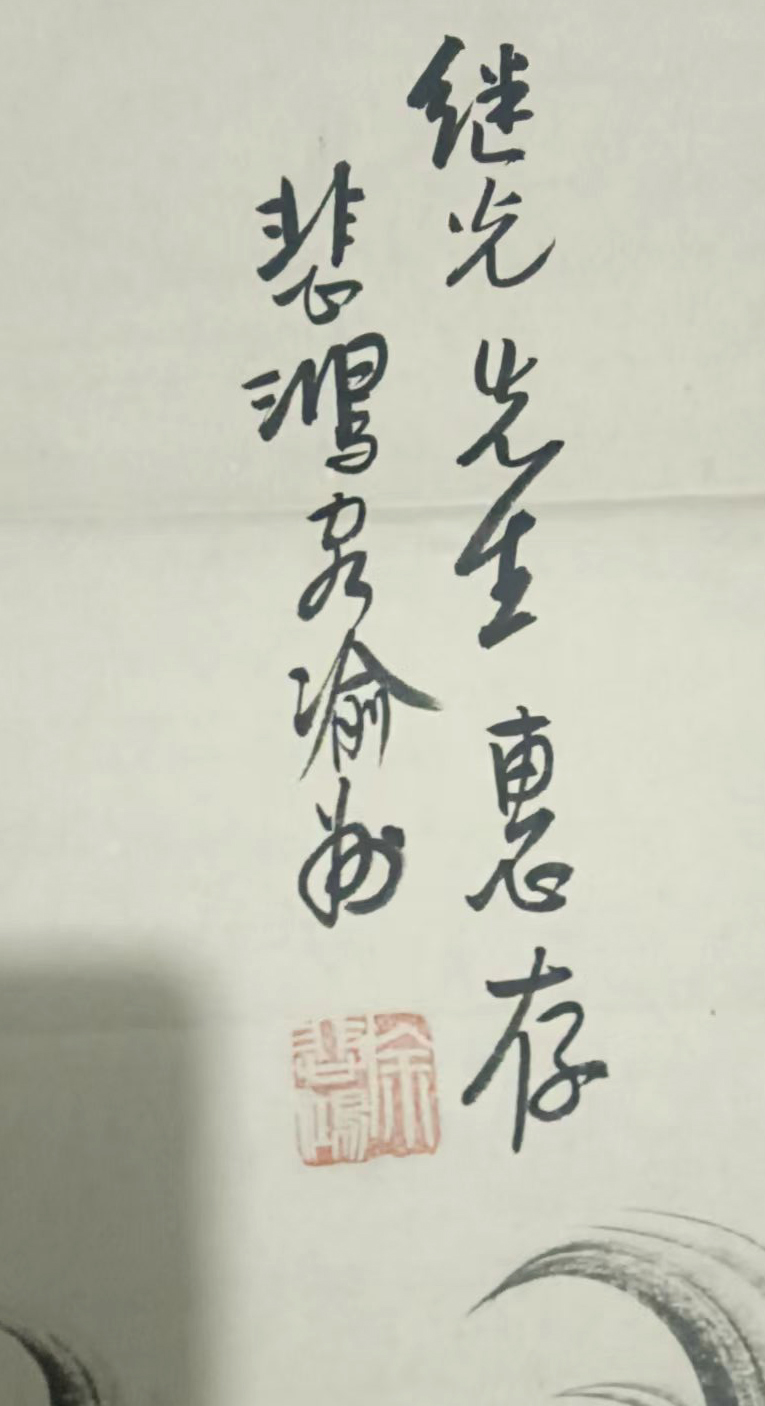 继光先生惠存
悲鸿客渝州
徐悲鸿